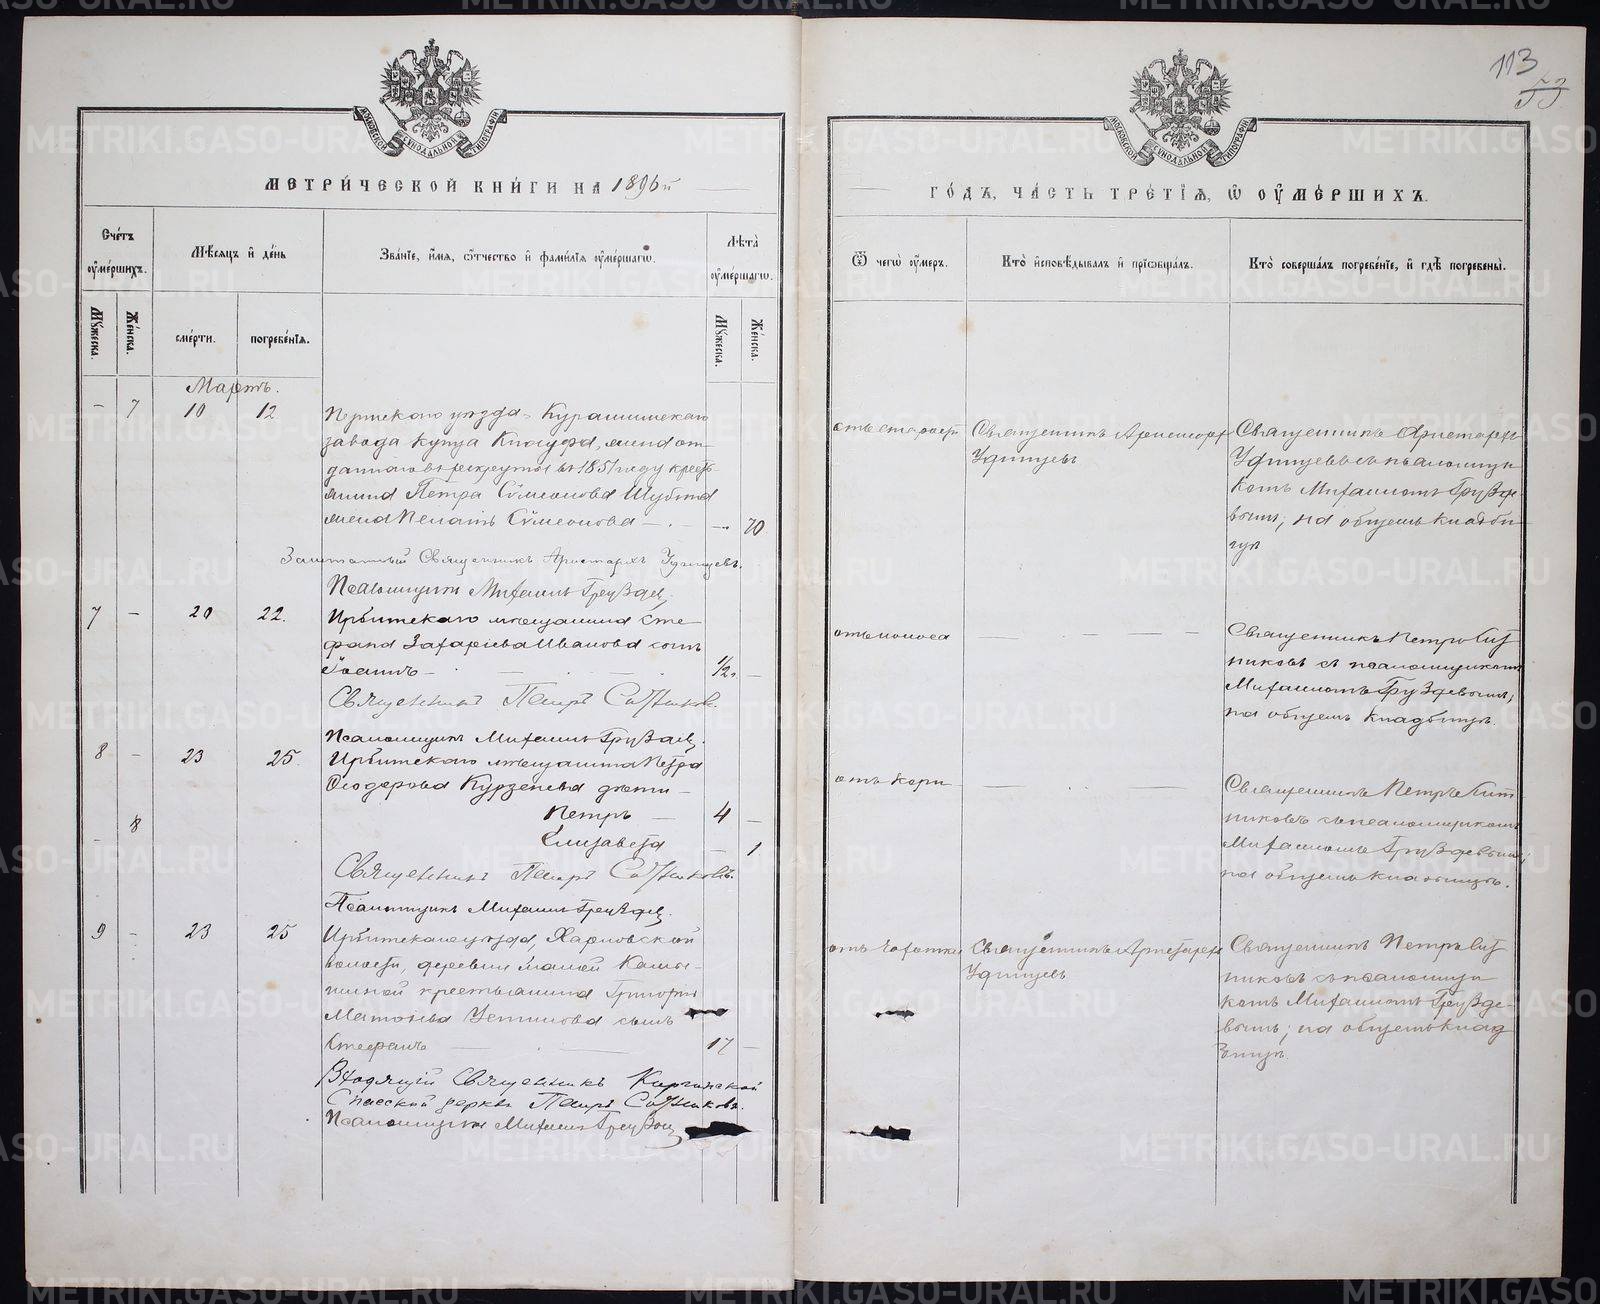 МЕТРИ́ЧЕСКОЙ КНИ́ГИ НА 1896й
Сче́тъ оу҆ме́ршихъ.
Мѣ́сяцъ и҆ де́нь
Зва́нїе, и҆́мѧ, ѻ҆́тчество и҆ фами́лїѧ оу҆ме́ршагѡ.
Лѣ́та оу҆ме́ршагѡ.
Мꙋ́жеска.
Же́нска.
сме́рти.
погребе́нїѧ.
Мꙋ́жеска.
Же́нска.
Мартъ.
- 7 10 12 Пермскаго уѣзда Курашимскаго
завода купца Кнауфа, жена от
даннаго въ рекруты въ 1851 году кресть
янина Петра Сѵмеонова
жена Сѵмеонова — 70
Заштатный Священникъ Аристархъ Удинцевъ.
Псаломщикъ Михаилъ Груздевъ.
7 - 20 22. Ирбитскаго мѣщанина Сте
фана Захарьева Иванова сынъ
Іоаннъ — 1/2 —
Священникъ Петръ Ситниковъ.
Псаломщикъ Михаилъ Груздевъ.
8 - 23 25. Ирбитскаго мѣщанина Петра
Ѳеодорова дѣти —
Петръ — 4 —
- 8 Елизавета 1
Священникъ Петръ Ситниковъ.
Псаломщикъ Михаилъ Груздевъ.
9 - 23 25 Ирбитскаго уѣзда, Харловской
волости, деревни Малой Камы-
шной крестьянина Григорія
Устинова сынъ
Стефанъ — 17 —
Входящій Священникъ
Спасской церкви Петръ Ситниковъ.
Псаломщикъ Михаилъ Груздевъ
113
53
ГО́ДЪ, ЧА́СТЬ ТРЕ́ТЇѦ, Ѡ҆ ОУ҆МЕ́РШИХЪ.
Ѿ чегѡ̀ оу҆́меръ.
Кто̀ и҆сповѣ́дывалъ и҆ прїѡбща́лъ.
Кто̀ соверша́лъ погребе́нїе, и҆ гдѣ̀ погребены̀.
отъ старост. Священникъ Аристархъ
Удинцевъ
Священникъ Аристархъ
Удинцевъ съ псаломщи
комъ Михаиломъ Груздe
вымъ, на общемъ кладби
щѣ
отъ поноса — — —
Священникъ Петръ Сит
никовъ съ псаломщикомъ
Михаиломъ Груздевымъ,
на общемъ кладбищѣ.
отъ кори — — —
Священникъ Петръ Сит
никовъ съ псаломщикомъ
Михаиломъ Груздевымъ,
на общемъ кладбищѣ.
отъ чахотки Священникъ Аристархъ
Удинцевъ
Священникъ Петръ Сит
никовъ съ псаломщи
комъ Михаиломъ Груздe
вымъ, на общемъ клад
бищѣ.